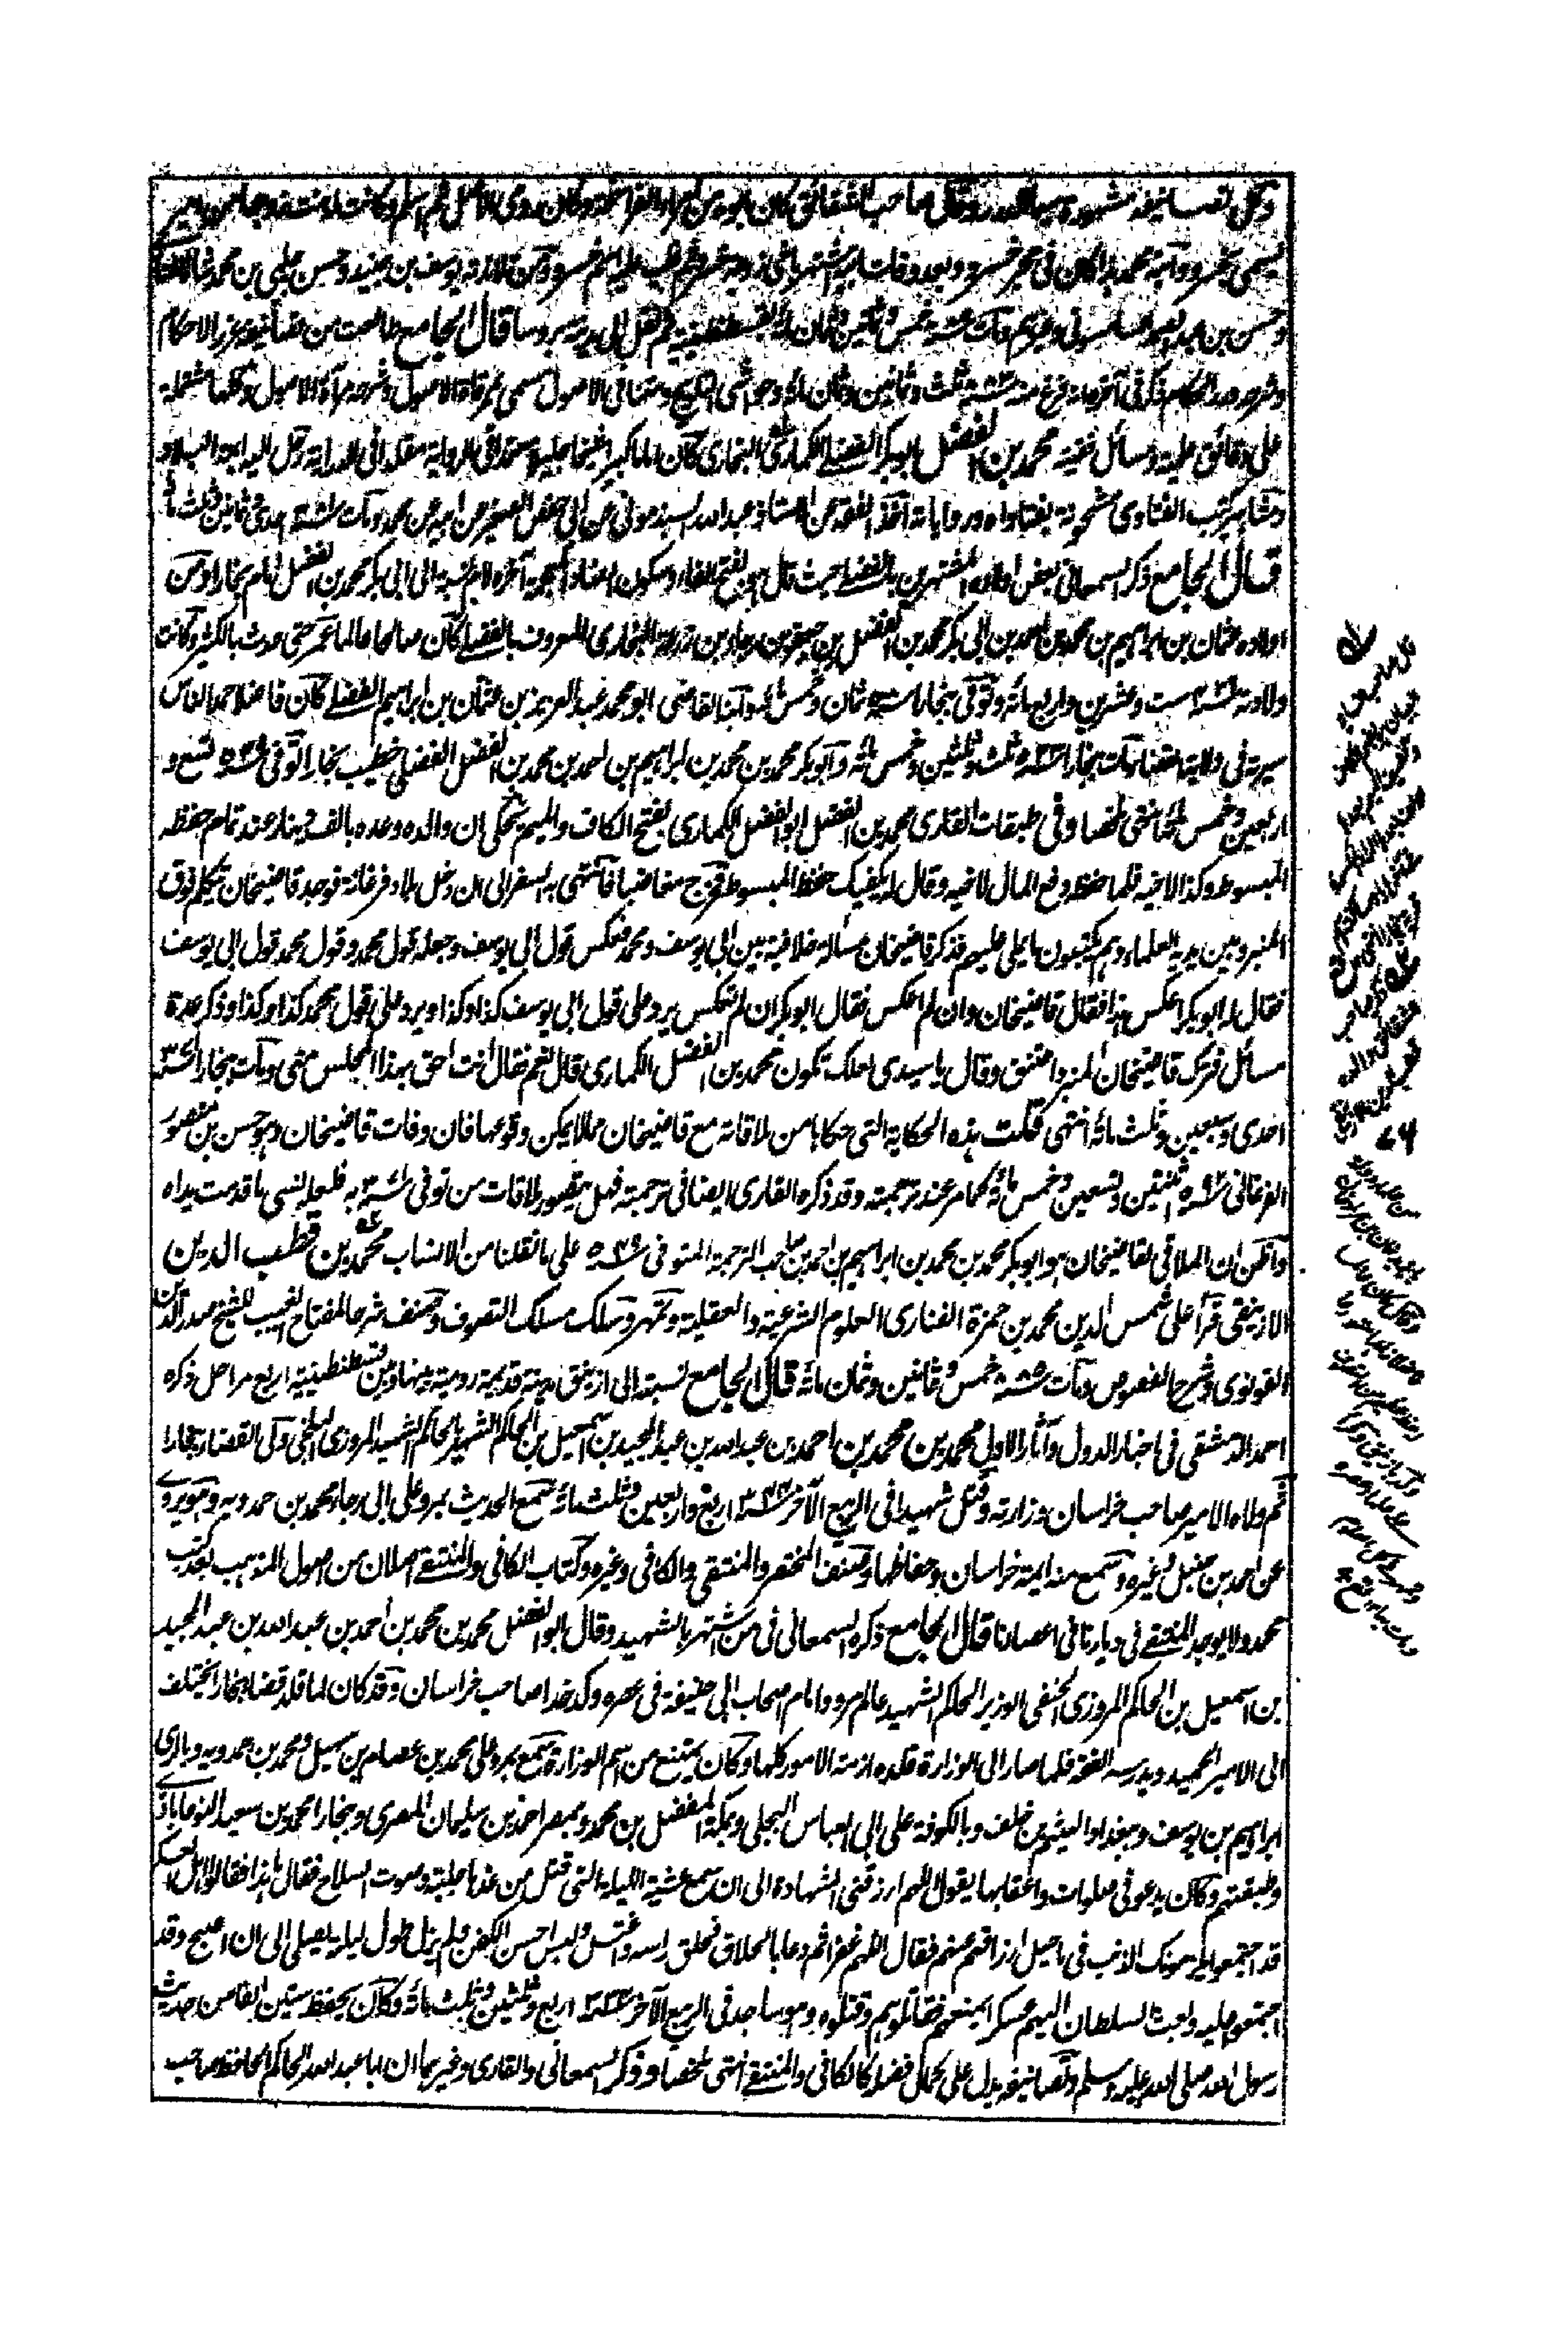 وكل تصانيفه مشهورة سيما الدرر وقال صاحب الشقائق كان ابوه من امراء الفراسخة وكان رومى الاصل ثم اسلم وكانت له بنت زوجها من امير
يسمى بخسرو وابنه محمد هذا كان فى حجر خسرو وبعد وفات ابيه اشتهر باخى زوجة خسرو ثم غلب عليه اسم خسرو ومن تلامذته يوسف بن جنيد وحسن چلپى بن محمد شاه الفنارى
وحسن بن عبد الصمد السامسونى وغيرهم ومات سنة خمس وثمانين وثمان مائة بقسطنطينية ثم نقل الى مدينة بروسا قال الجامع طالعت من تصانيفه غرر الاحكام
وشرحه درر الحكام ذكر فى آخره انه فرغ منه سنة ثلث وثمانين وثمان مائة وحواشى التلويح ومتنا فى الاصول مسمى بمرقاة الاصول وشرحه مرآة الاصول وكلها مشتملة
على دقائق علمية ومسائل فقهية محمد بن الفضل ابو بكر الفضلى الكمارى البخارى كان اماما كبيرا وشيخا جليلا معتمدا فى الرواية مقلدا فى الدراية رحل اليه ائمة البلاد
ومشاهير كتب الفتاوى مشحونة بفتاواه ورواياته اخذ الفقه عن الاستاذ عبد الله السبذمونى عن ابى حفص الصغير عن ابيه عن محمد ومات سنة ٣٨١ احدى وثمانين وثلث مائة
قال الجامع ذكر السمعانى بعض اولاده المشتهرين بالفضلى حيث قال هو بفتح الفاء وسكون الضاد المعجمة آخره لام نسبة الى ابى بكر محمد بن الفضل امام بخارا ومن
اولاده عثمان بن ابراهيم بن محمد بن احمد بن ابى بكر محمد بن الفضل بن جعفر بن رجاء بن زرعة البخارى المعروف بالفضلى كان صالحا عالما عمر حتى حدث بالكثير وكانت
ولادته سنة ٤٢٦ ست وعشرين واربع مائة وتوفى ببخارا سنة ٥٠٨ ثمان وخمس مائة وابنه القاضى ابو محمد عبد العزيز بن عثمان بن ابراهيم الفضلى كان فاضلا حمد الناس
سيرته فى ولاية القضاء مات ببخارا سنة ٥٣٣ ثلث وثلثين وخمس مائة وابو بكر محمد بن محمد بن ابراهيم بن احمد بن محمد بن الفضل الفضلى خطيب بخارا توفى سنة ٥٤٩ تسع و
اربعين وخمس مائة انتهى ملخصا وفى طبقات القارى محمد بن الفضل ابو الفضل الكمارى بفتح الكاف والميم يحكى ان والده وعده بالف دينار عند تمام حفظه
المبسوط وكذا لاخيه فلما حفظ دفع المال لاخيه وقال له يكفيك حفظ المبسوط فخرج مغاضبا فانتهى به السفر الى ان دخل بلاد فرغانة فوجد قاضيخان يتكلم فوق
المنبر وبين يديه العلماء وهم يكتبون ما يملى عليهم فذكر قاضيخان مسألة خلافية بين ابى يوسف ومحمد فعكس قول ابى يوسف وجعله قول محمد وقول محمد قول ابى يوسف
فقال له ابو بكر اعكس هذا فقال قاضيخان وان لم اعكس فقال ابو بكر ان لم تعكس يرد على قول ابى يوسف كذا وكذا ويرد على قول محمد كذا وكذا وذكر عدة
مسائل فترك قاضيخان المنبر واعتنق وقال يا سيدى لعلك تكون محمد بن الفضل الكمارى قال نعم فقال انت احق بهذا المجلس منى ومات ببخارا سنة ٣٧١
احدى وسبعين وثلث مائة انتهى قلت هذه الحكاية التى حكاها من ملاقاته مع قاضيخان مما لا يمكن وقوعها فان وفات قاضيخان وهو حسن بن منصور
الفرغانى سنة ٥٩٢ ثنتين وتسعين وخمس مائة كما مر عند ترجمته وقد ذكره القارى ايضا فى ترجمته فهل يتصور ملاقات من توفى سنة ٣٧١ به فلعله نسى ما قدمت يداه
واظن ان الملاقى لقاضيخان هو ابو بكر محمد بن محمد بن ابراهيم بن احمد بن صاحب الترجمة المتوفى سنة ٥٤٩ على ما نقلنا من الانساب محمد بن قطب الدين
الازنيقى قرأ على شمس الدين محمد بن حمزة الفنارى العلوم الشرعية والعقلية وتمهر وسلك مسلك التصوف وصنف شرحا لمفتاح الغيب للشيخ صدر الدين
القونوى وشرح الفصوص ومات سنة ٨٨٥ خمس وثمانين وثمان مائة قال الجامع نسبته الى ازنيق مدينة قديمة رومية بينها وبين قسطنطينية اربع مراحل ذكره
احمد الدمشقى فى اخبار الدول وآثار الاول محمد بن محمد بن احمد بن عبد الله بن عبد المجيد بن اسمعيل بن الحاكم الشهير بالحاكم الشهيد المروزى البلخى ولى القضاء ببخارا
ثم ولاه الامير صاحب خراسان وزارته وقتل شهيدا فى الربيع الآخر سنة ٣٤٤ اربع واربعين وثلث مائة سمع الحديث بمرو على ابى رجاء محمد بن حمدويه وهو يروى
عن احمد بن حنبل وغيره وسمع منه ايمة خراسان وحفاظها وصنف المختصر والمنتقى والكافى وغيره وكتاب الكافى والمنتقى اصلان من اصول المذهب بعد كتب
محمد ولا يوجد المنتقى فى ديارنا فى اعصارنا قال الجامع ذكره السمعانى فى من اشتهر بالشهيد وقال ابو الفضل محمد بن محمد بن احمد بن عبد الله بن عبد المجيد
بن اسمعيل بن الحاكم المروزى الحنفى الوزير الحاكم الشهيد عالم مرو وامام اصحاب ابى حنيفة فى عصره وكدخدا صاحب خراسان وقد كان لما قلد قضاء بخارا يختلف
الى الامير الحميد ويدرسه الفقه فلما صار الى الوزارة قلده ازمة الامور كلها وكان يمتنع من اسم الوزارة سمع بمرو على محمد بن عصام بن سهيل ومحمد بن حمدويه وبالرى
ابراهيم بن يوسف وببغداد الهيثم بن خلف وبالكوفة على ابى العباس البجلى وبمكة المفضل بن محمد وبمصر احمد بن سليمان المصرى وببخارا محمد بن سعيد النوجاباذى
وطبقتهم وكان يدعو فى صلوات واعقابها يقول اللهم ارزقنى الشهادة الى ان سمع عشية الليلة التى قتل من غدها جلبة وصوت السلاح فقال ما هذا فقالوا اهل العسكر
قد اجتمعوا يلزمونك الذنب فى تأجيل ارزاقهم عنهم فقال اللهم غفرا ثم دعا بالحلاق فحلق راسه واغتسل ولبس احسن الكفن ولم يزل طول ليله يصلى الى ان اصبح وقد
اجتمعوا عليه وبعث السلطان اليهم عسكرا يمنعهم فقاتلوهم وقتلوه وهو ساجد فى الربيع الآخر سنة ٣٣٤ اربع وثلثين وثلث مائة وكان يحفظ ستين الفا من حديث
رسول الله صلى الله عليه وسلم وتصانيفه يدل على كمال فضله كالكافى والمنتقى انتهى ملخصا وذكر السمعانى والقارى وغيرهما ان ابا عبد الله الحاكم الحافظ صاحب